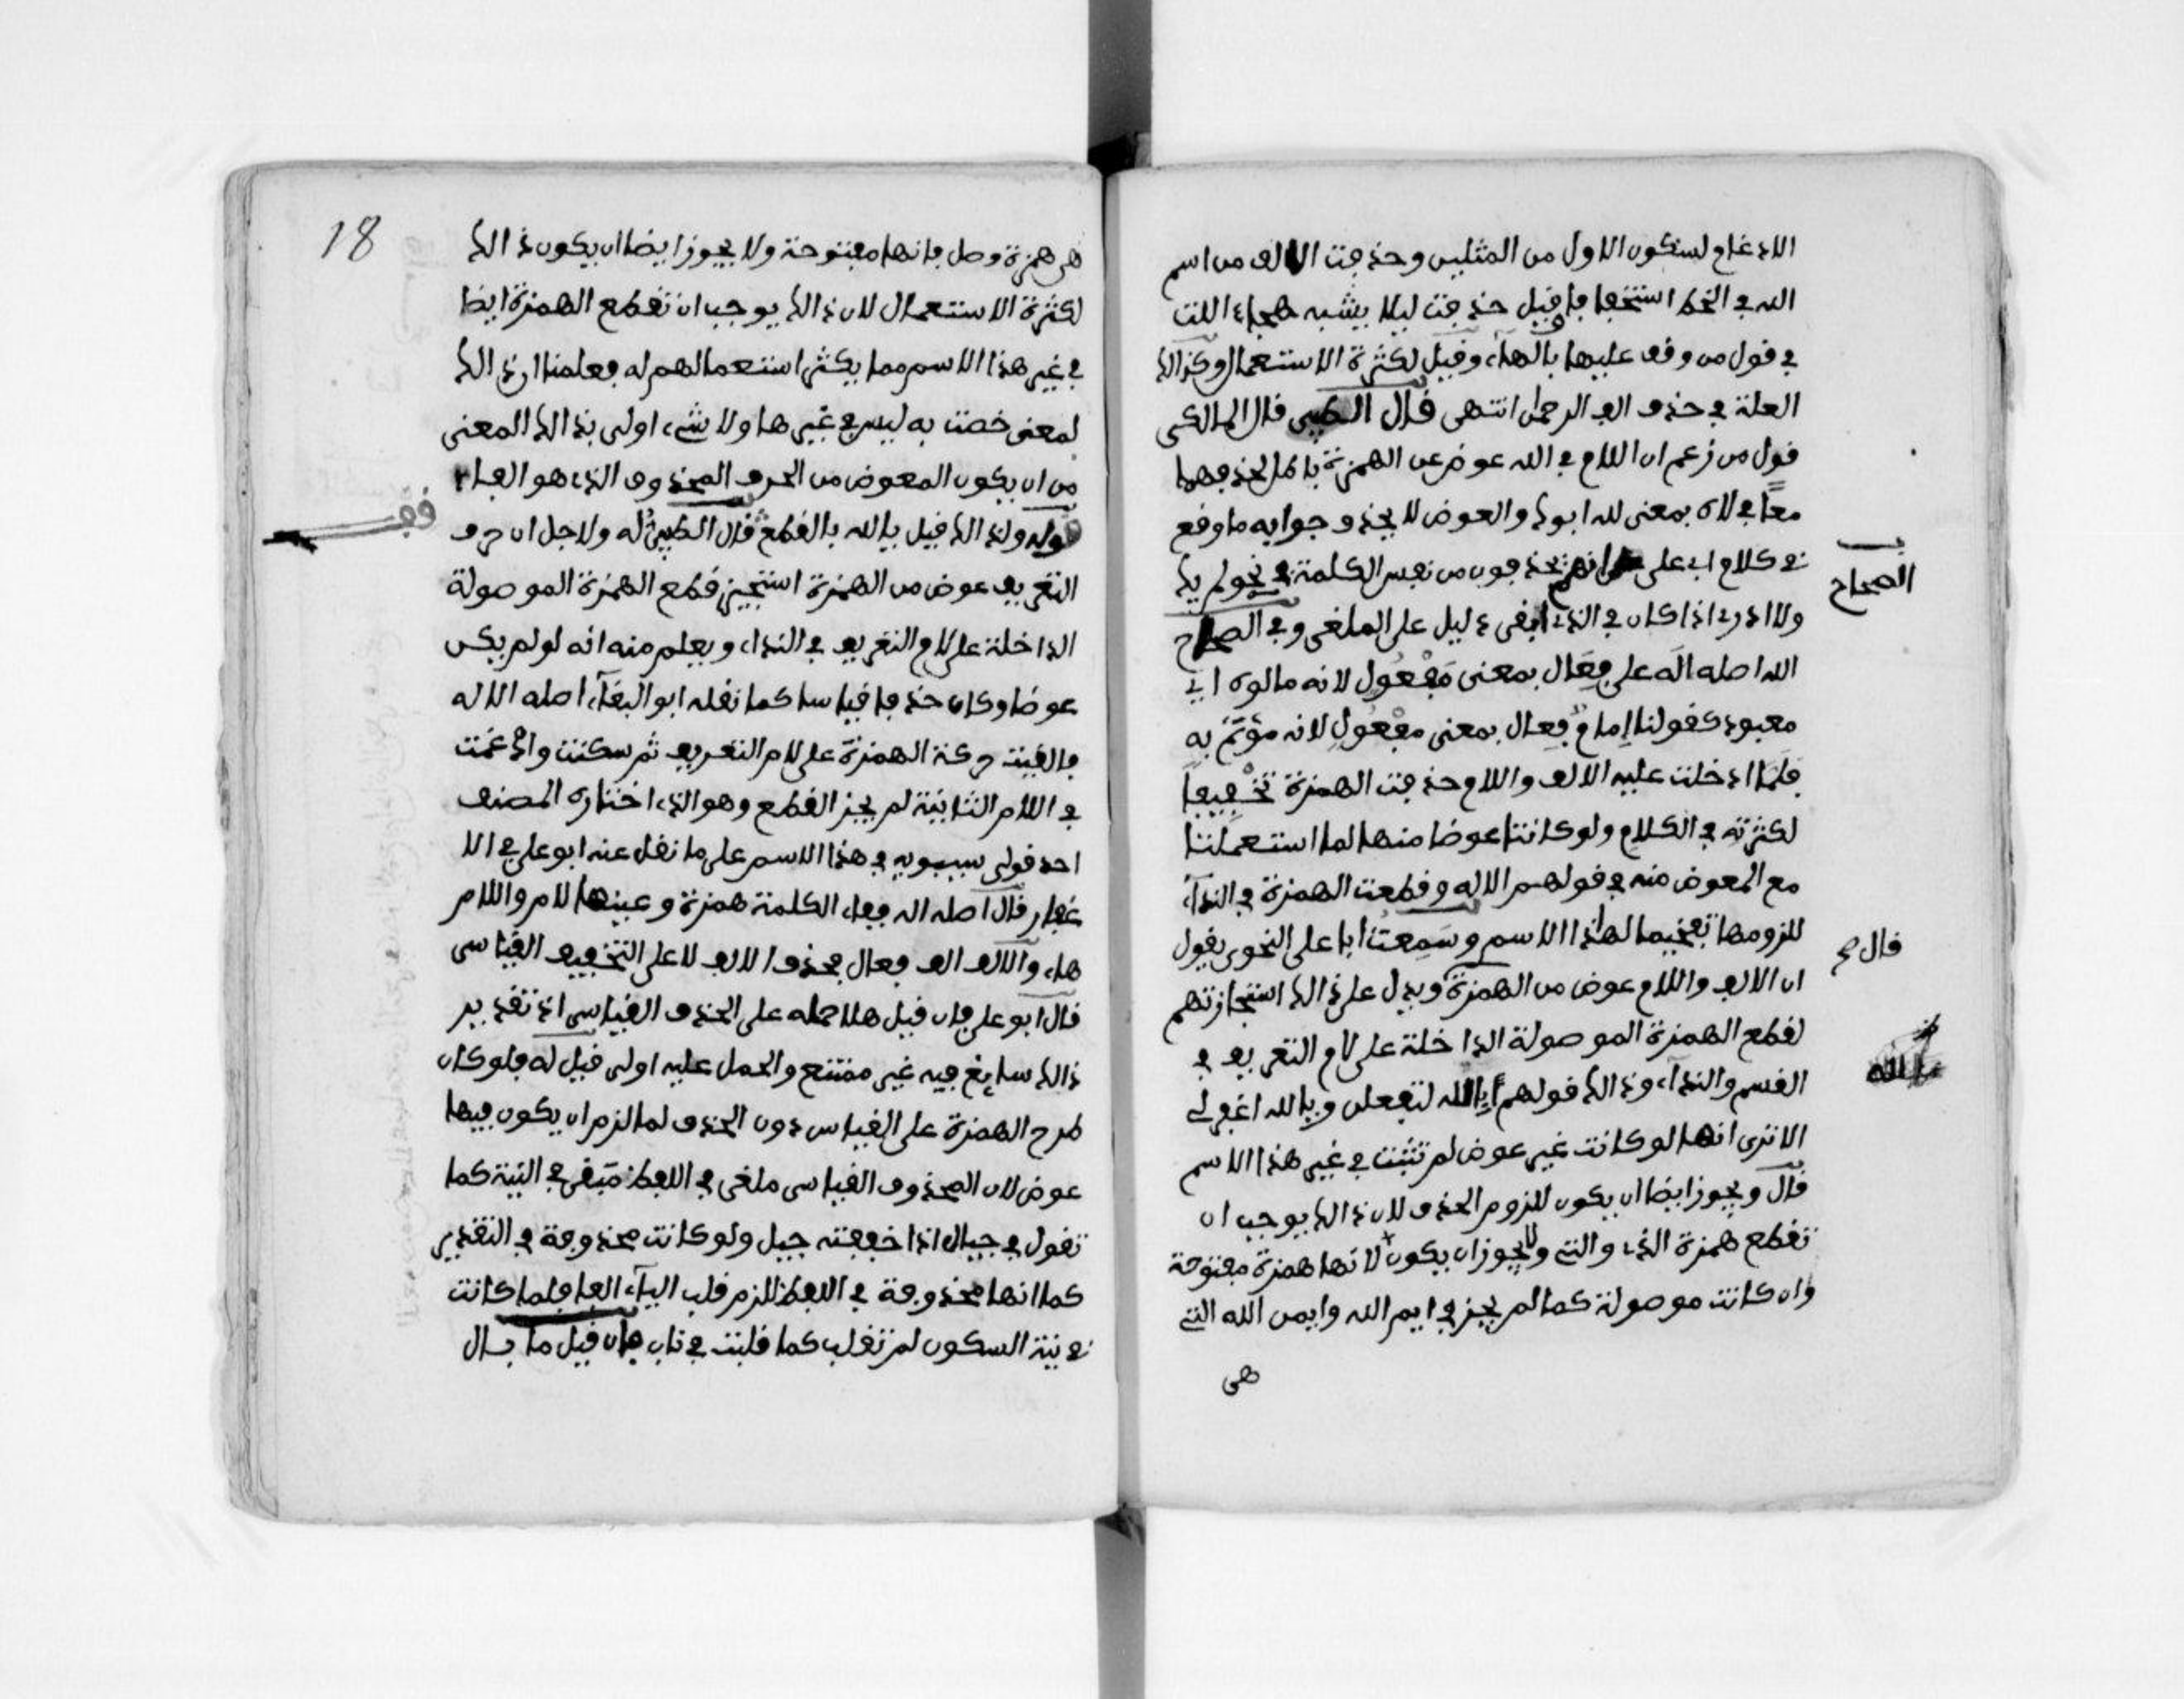 الادغام لسكون الاول من المثلين وحذفت الالف من اسم
الله في الخط استخفافا وقيل حذفت ليلا يشبه هجاء اللت
في قول من وقف عليها بالهاء وقيل لكثرة الاستعمال وكذالك
العلة في حذف الف الرحمان انتهى قال الطيبي قال المالكي
قول من زعم ان اللام في الله عوض عن الهمزة باطل لحذفهما
معا في لاه بمعنى لله ابوك والعوض لا يحذف وجوابه ما وقع
في كلام ابي علي انهم يحذفون من نفس الكلمة في نحو لم يك
ولا ادر اذا كان في الذي ابقي دليل على الملغى وفي الصحاح
الصحاح
الله اصله الاه على فعال بمعنى مفعول لانه مالوه اي
معبود كقولنا امام فعال بمعنى مفعول لانه مؤتم به
فلما ادخلت عليه الالف واللام حذفت الهمزة تخفيفا
لكثرته في الكلام ولو كانتا عوضا منها لما استعملتا
مع المعوض منه في قولهم الاله وقطعت الهمزة في النداء
للزومها تفخيما لهذا الاسم وسمعت ابا علي النحوي يقول
قال صح
ان الالف واللام عوض من الهمزة ويدل على ذالك استجازتهم
لقطع الهمزة الموصولة الداخلة على لام التعريف في
القسم والنداء وذالك قولهم أفالله لتفعلن ويا الله اغفر لي
الا ترى انها لو كانت غير عوض لم تثبت في غير هذا الاسم
قال ويجوز ايضا ان يكون للزوم الحذف لان ذالك يوجب ان
تقطع همزة الذي والتي ولا يجوز ان يكون لانها همزة مفتوحة
وان كانت موصولة كما لم يجز في ايم الله وايمن الله التي
هي
18
هي همزة وصل فانها مفتوحة ولا يجوز ايضا ان يكون ذالك
لكثرة الاستعمال لان ذالك يوجب ان تقطع الهمزة ايضا
في غير هذا الاسم مما يكثر استعمالهم له فعلمنا ان ذالك
لمعنى خصت به ليس في غيرها ولا شيء اولى بذالك المعنى
من ان يكون المعوض من الحرف المحذوف الذي هو الفاء
قوله ولذالك قيل يا الله بالقطع قال الطيبي له ولاجل ان حرف
التعريف عوض من الهمزة استجيز قطع الهمزة الموصولة
الداخلة على لام التعريف في النداء ويعلم منه انه لو لم يكن
عوضا وكان حذفا قياسا كما نقله ابو البقاء اصله الاله
فالقيت حركة الهمزة على لام التعريف ثم سكنت وادغمت
في اللام الثانية لم يجز القطع وهو الذي اختاره المصنف
احد قولي سيبويه في هذا الاسم على ما نقل عنه ابو علي في الا
غفار قال اصله اله ففاء الكلمة همزة وعينها لام واللام
هاء والالف الف فعال فحذف الالف لا على التخفيف القياسي
قال ابو علي فان قيل هلا حمله على الحذف القياسي اذ تقدير
ذالك سايغ فيه غير ممتنع والحمل عليه اولى قيل له فلو كان
طرح الهمزة على القياس دون الحذف لما لزم ان يكون فيها
عوض لان المحذوف القياسي ملغى في اللفظ مبقى في النية كما
تقول في جيال اذا خففته جيل ولو كانت محذوفة في التقدير
كما انها محذوفة في اللفظ للزم قلب الياء الفا فلما كانت
في نية السكون لم تقلب كما قلبت في ناب فان قيل ما بال